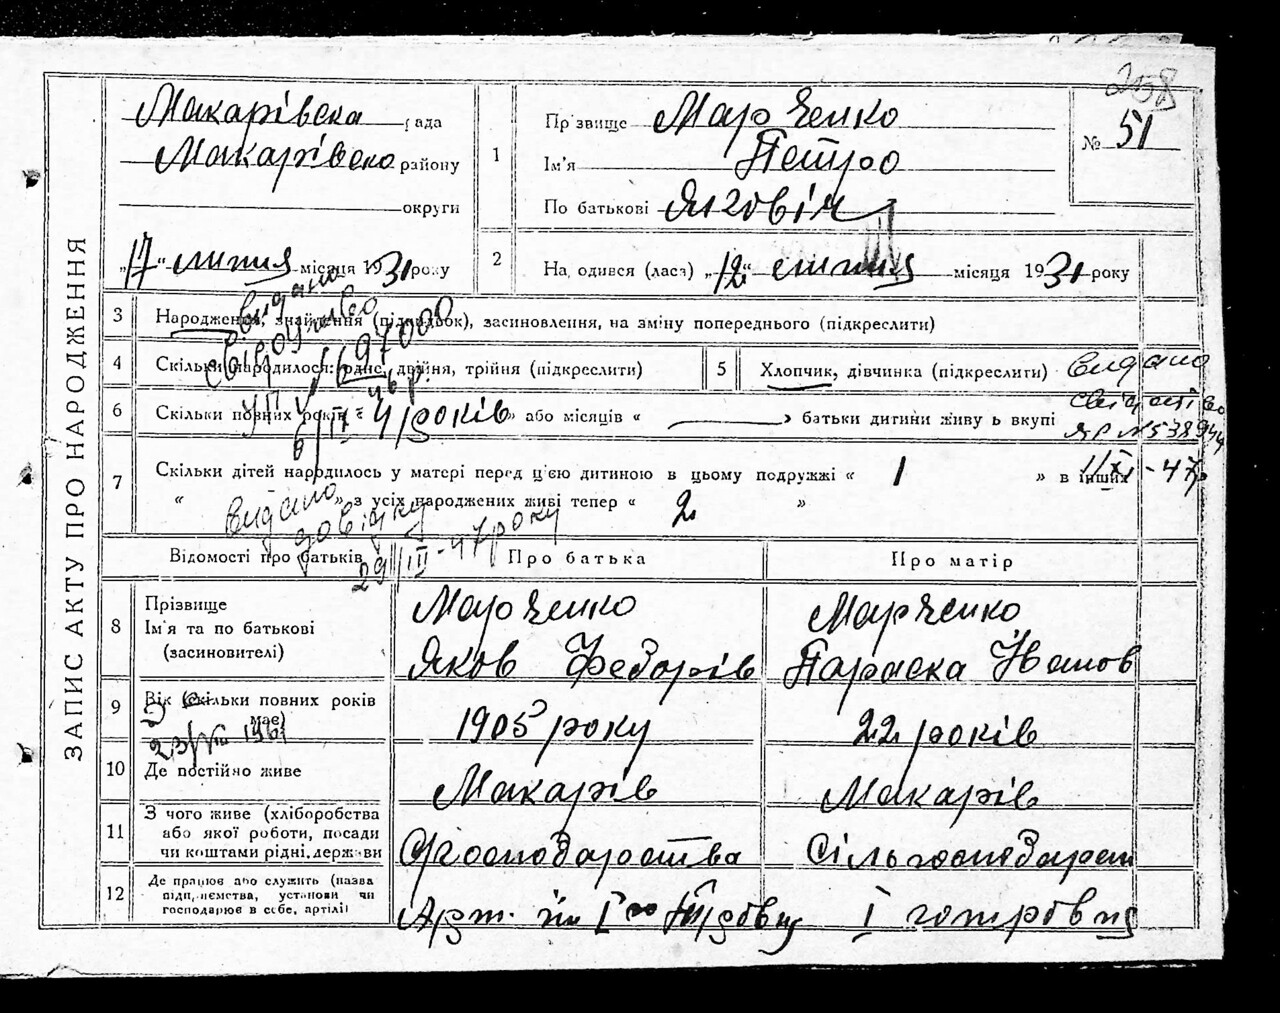 258
Макарівска рада
Макарівско району
округи
„17“ липня місяця 1931 року
1
Прізвище Марченко
Ім'я Петро
По батькові Якович
№ 51
2
На одився (лась) „12“ липня місяця 1931 року
ЗАПИС АКТУ ПРО НАРОДЖЕННЯ
3 Народження, знайдення (підкидьок), засиновлення, на зміну попереднього (підкреслити)
4 Скільки народилося: одне, двійня, трійня (підкреслити)
5 Хлопчик, дівчинка (підкреслити)
видано
свідоцтво
697000
46 р.
видано
свідоцтво
ЯР № 538944
11/XI-47р
6 Скільки повних років « 4 років » або місяців « » батьки дитини живу ь вкупі
7 Скільки дітей народилось у матері перед ц'єю дитиною в цьому подружжі « 1 » в інших
« », з усіх народжених живі тепер « 2 »
видано
довідку
29/III-47 року
Відомості про батьків
Про батька
Про матір
8 Прізвище
Ім'я та по батькові
(засиновителі)
Марченко
Яков Федорів
Марченко
Параска Іванов
9 Вік (скільки повних років
має)
1905 року
22 років
23/VIII 196
10 Де постійно живе
Макарів
Макарів
11 З чого живе (хліборобства
або якої роботи, посади
чи коштами рідні, держави
С/господарства
Сільгосподарст
12 Де працює або служить (назва
підприємства, установи чи
господарює в себе, артілі)
Арт. ім І го Травня
І го травня